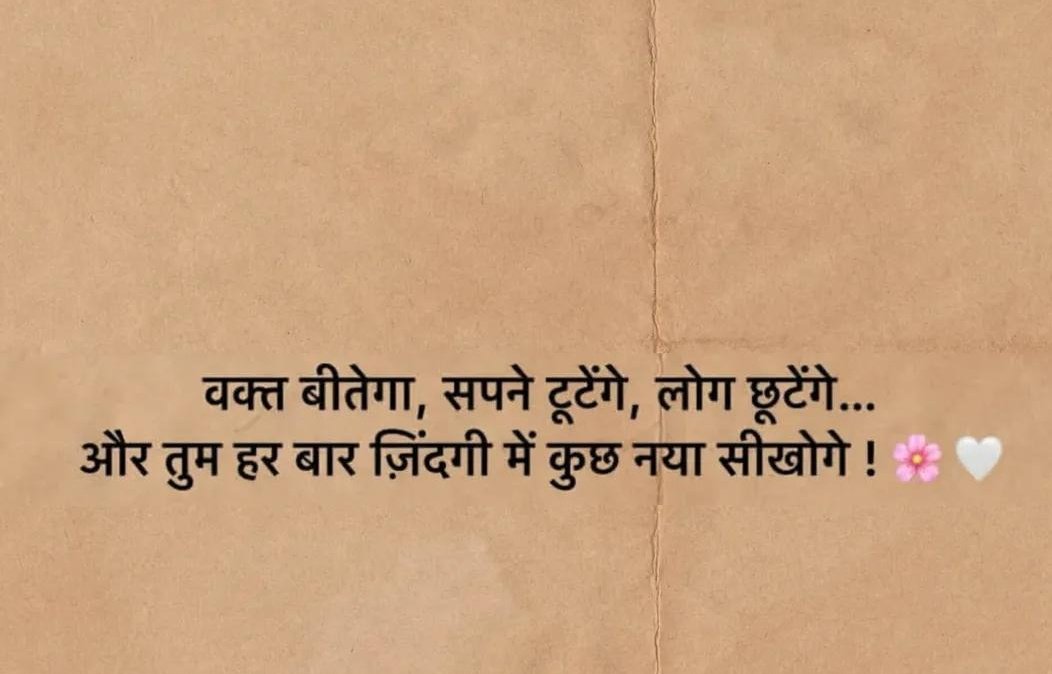 वक्त बीतेगा, सपने टूटेंगे, लोग छूटेंगे...
और तुम हर बार ज़िंदगी में कुछ नया सीखोगे ! 🌸🤍